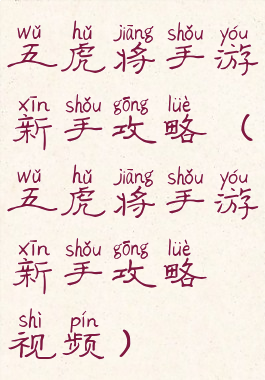 wǔ hǔ jiāng shǒu yóu
五虎将手游
xīn shǒu gōng lüè
新手攻略（
wǔ hǔ jiāng shǒu yóu
五虎将手游
xīn shǒu gōng lüè
新手攻略
shì pín
视频）